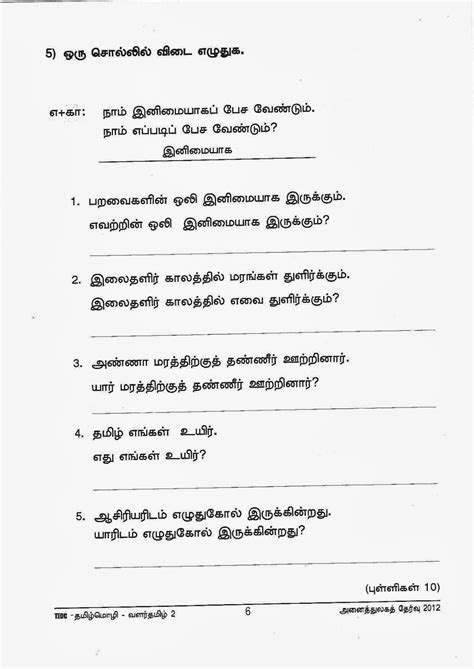 5) ஒரு சொல்லில் விடை எழுதுக.
எ+கா: நாம் இனிமையாகப் பேச வேண்டும்.
நாம் எப்படிப் பேச வேண்டும்?
இனிமையாக
1. பறவைகளின் ஒலி இனிமையாக இருக்கும்.
எவற்றின் ஒலி இனிமையாக இருக்கும்?
2. இலைதளிர் காலத்தில் மரங்கள் துளிர்க்கும்.
இலைதளிர் காலத்தில் எவை துளிர்க்கும்?
3. அண்ணா மரத்திற்குத் தண்ணீர் ஊற்றினார்.
யார் மரத்திற்குத் தண்ணீர் ஊற்றினார்?
4. தமிழ் எங்கள் உயிர்.
எது எங்கள் உயிர்?
5. ஆசிரியரிடம் எழுதுகோல் இருக்கின்றது.
யாரிடம் எழுதுகோல் இருக்கின்றது?
(புள்ளிகள் 10)
TEDC -தமிழ்மொழி - வளர்தமிழ் 2 6 அனைத்துலகத் தேர்வு 2012